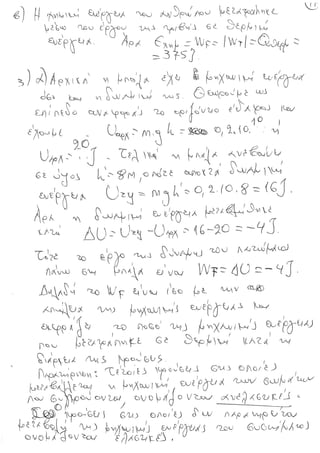 β) Η χημική ενέργεια του ανθρώπου μετατράπηκε
μέσω του έργου της τριβής σε θερμική
ενέργεια. Άρα Εχημ = WF = |WT| = Qθερμ =
= 375 J
3) α) Αρχικά η μπάλα έχει μηχανική ενέργεια
όση και η δυναμική της. Θεωρούμε ως
επίπεδο αναφοράς το οριζόντιο έδαφος και
έχουμε Uαρχ = m.g h = 0,2.10.10 ή
Uαρχ = 20 J. Τελικά η μπάλα ανεβαίνει
σε ύψος h' = 8m, οπότε αποκτά δυναμική
ενέργεια Uτελ = mgh' = 0,2.10.8 = 16 J.
Άρα η δυναμική ενέργεια μεταβλήθηκε
κατά ΔU = Uτελ - Uαρχ = 16-20 = -4 J.
Τότε το έργο της δύναμης του πατώματος
πάνω στη μπάλα είναι WF = ΔU = -4 J.
Δηλαδή το WF είναι ίσο με την
απώλεια της μηχανικής ενέργειας και
εκφράζει το ποσό της μηχανικής ενέργειας
που μετατράπηκε σε θερμική κατά τη
διάρκεια της κρούσης.
Παρατήρηση: Τέτοιες κρούσεις στις οποίες
μεταβάλλεται η μηχανική ενέργεια των σωμάτων
που συγκρούονται, ονομάζονται ανελαστικές.
Οι κρούσεις στις οποίες δεν παρατηρείται
μεταβολή της μηχανικής ενέργειας του συστήματος
ονομάζονται ελαστικές.